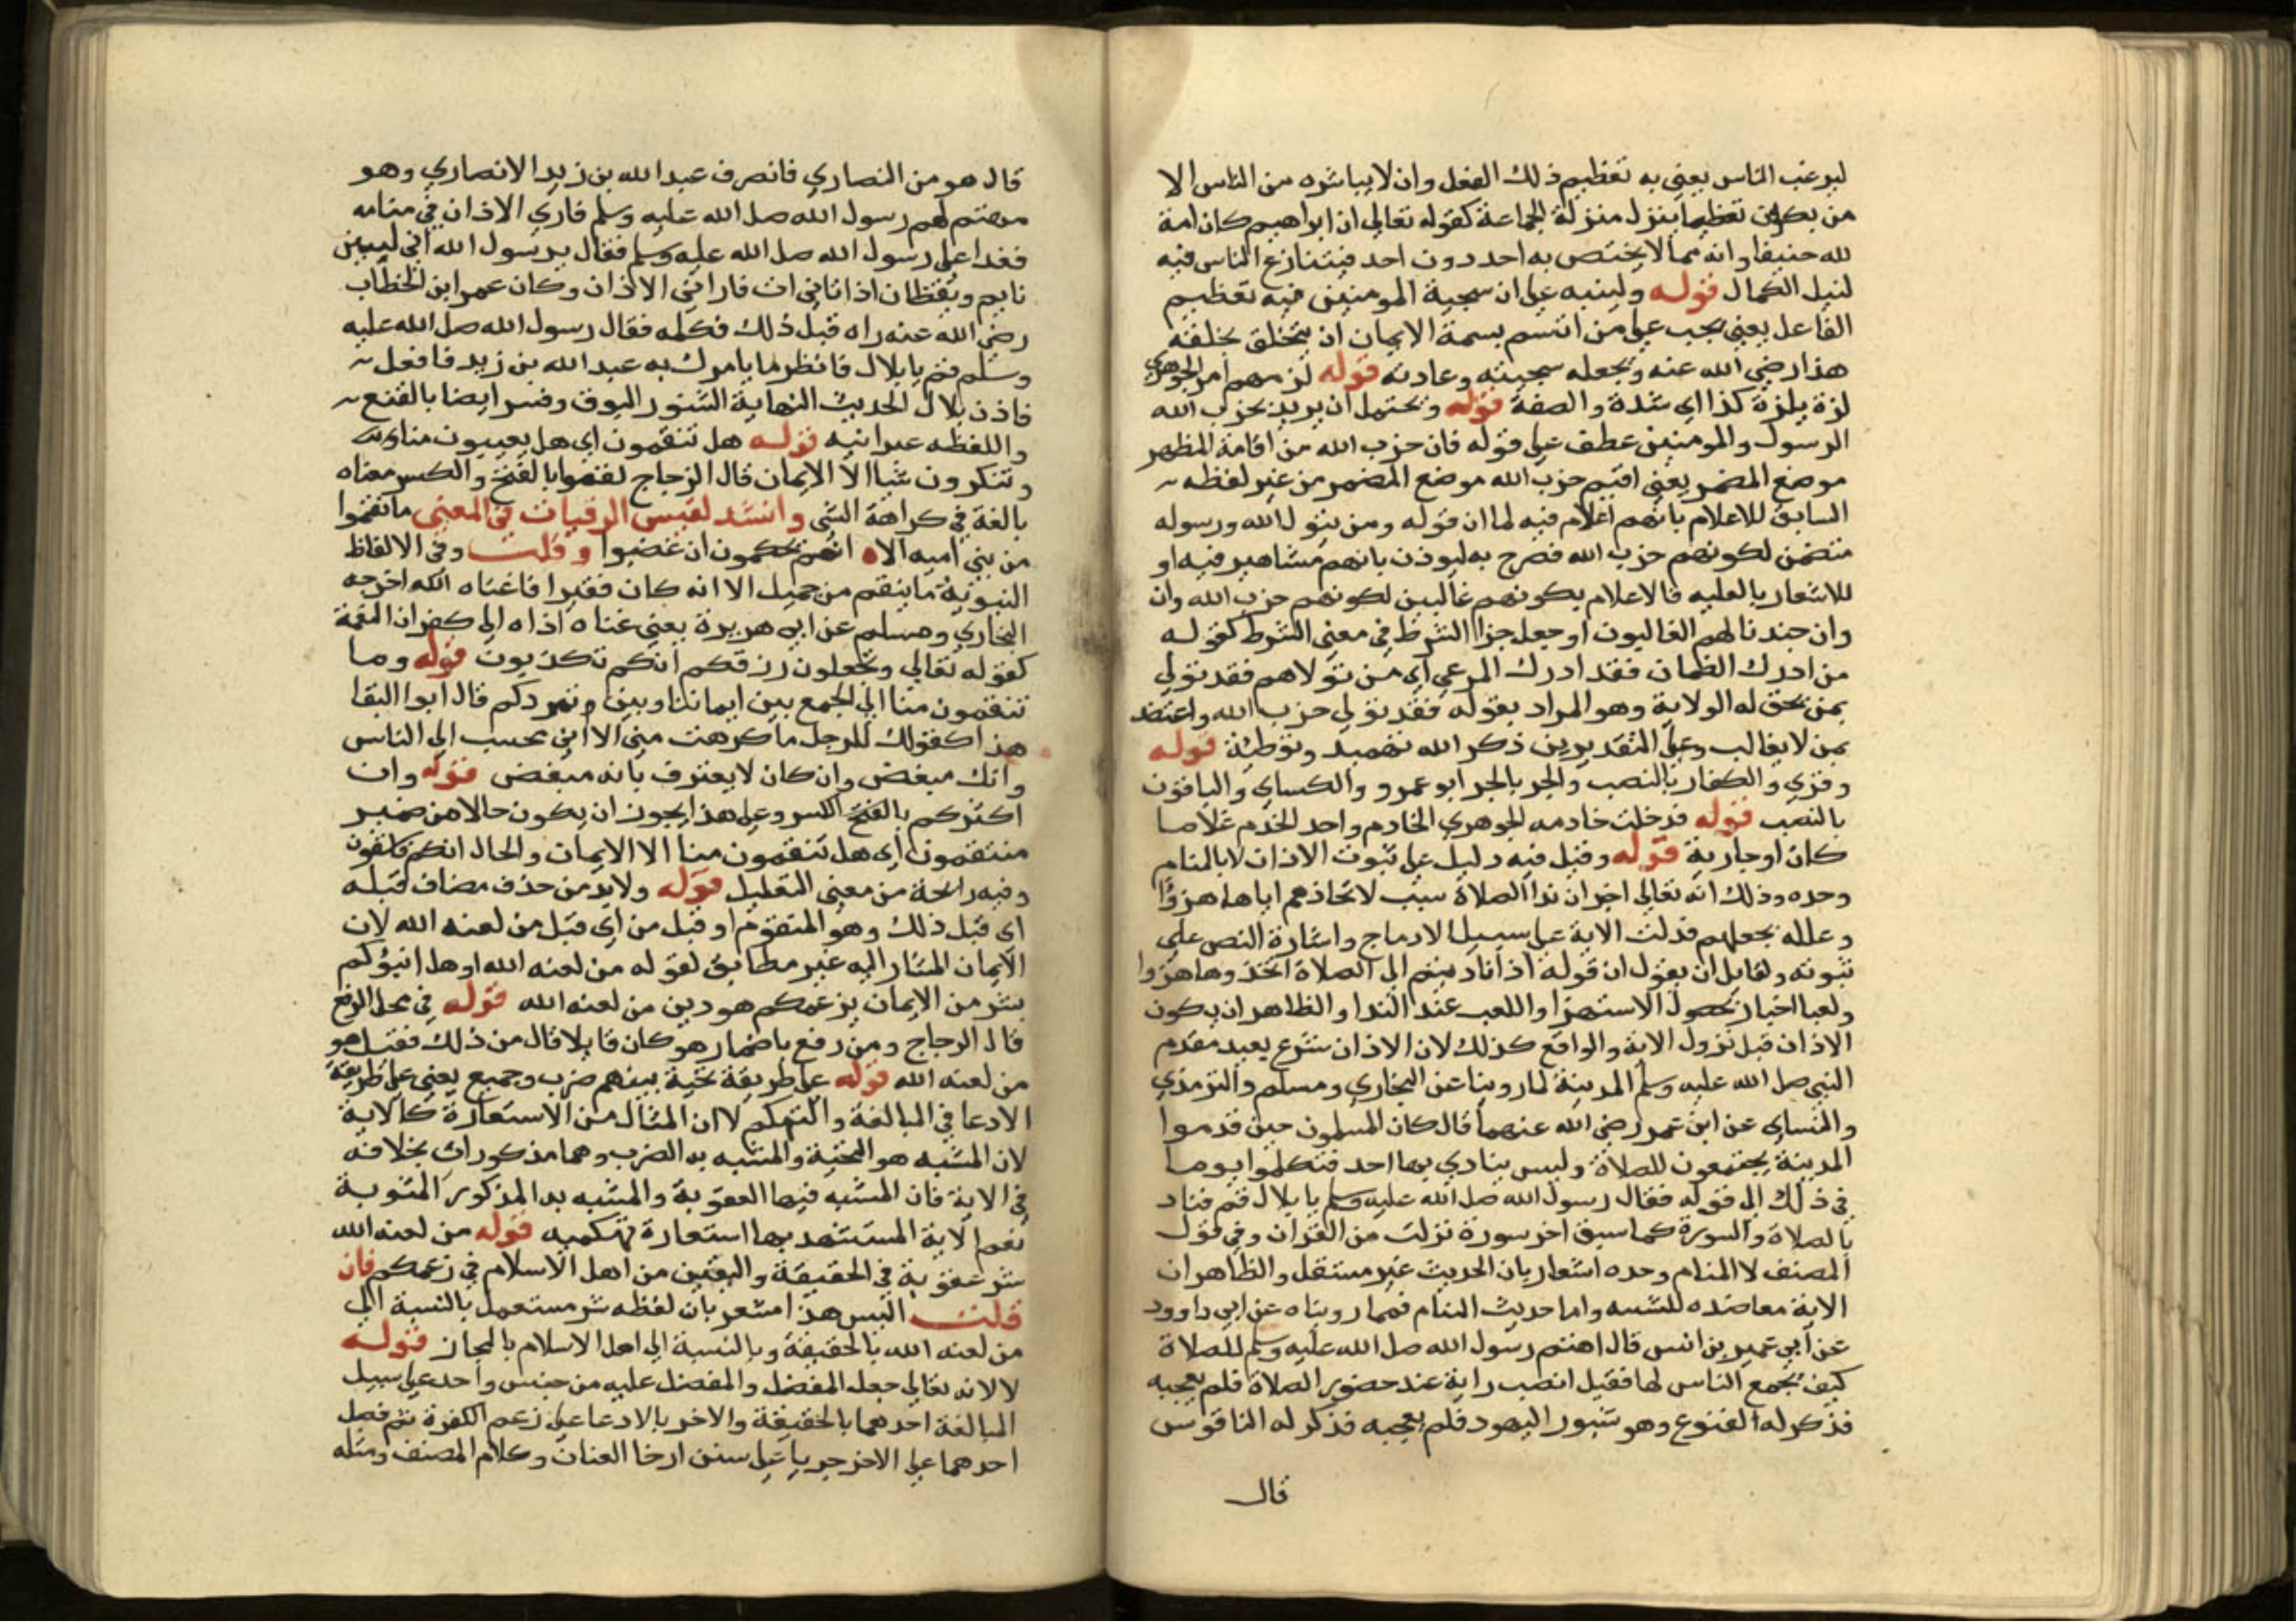 ليرغب الناس يعني به تعظيم ذلك الفعل وان لا يباشره من الناس الا
من يكون تعظيما ينزل منزلة الجماعة كقوله تعالي ان ابراهيم كان امة
لله حنيفا وانه مما لا يختص به احد دون احد فيتنازع الناس فيه
لنيل الكمال قوله ولينبه علي ان سجية المومنين فيه تعظيم
الفاعل يعني يجب علي من اتسم بسمة الايمان ان يتخلق بخلقه
هذا رضي الله عنه ويجعله سجيته وعادته قوله لزمهم امر الجوهري
لزه يلزه كذا اي شده والصقه قوله ويحتمل ان يريد بحزب الله
الرسول والمومنين عطف علي قوله فان حزب الله من اقامة المظهر
موضع المضمر يعني اقيم حزب الله موضع المضمر من غير لفظه
السابق للاعلام بانهم اعلام فيه لما ان قوله ومن يتول الله ورسوله
متضمن لكونهم حزب الله فصرح به ليوذن بانهم مشاهير فيه او
للاشعار بالعليه فالاعلام بكونهم غالبين لكونهم حزب الله وان
وان جندنا لهم الغالبون او جعل جزا الشرط في معني الشرط كقوله
من ادرك الضمان فقد ادرك المرعي اي من تولاهم فقد تولي
بمن يحق له الولاية وهو المراد بقوله فقد تولي حزب الله واعتضد
بمن لا يغالب وعلي التقديرين ذكر الله تمهيد وتوطية قوله
وقري والكفار بالنصب والجر بالجر ابو عمرو والكساي والباقون
بالنصب قوله فدخلت خادمه الجوهري الخادم واحد الخدم غلاما
كان او جارية قوله وقيل فيه دليل علي ثبوت الاذان لا بالمنام
وحده وذلك انه تعالي اخبر ان ندا الصلاة سبب لاتخاذهم اياها هزوا
وعلله بجهلهم فدلت الاية علي سبيل الادماج واشارة النص علي
ثبوته ولقايل ان يقول ان قوله اذا ناديتم الي الصلاة اتخذوها هزوا
ولعبا اخبار بحصول الاستهزا واللعب عند الندا والظاهر ان يكون
الاذان قبل نزول الاية والواقع كذلك لان الاذان شرع بعيد مقدم
النبي صل الله عليه وسلم المدينة لما روينا عن البخاري ومسلم والترمذي
والنساي عن ابن عمر رضي الله عنهما قال كان المسلمون حين قدموا
المدينة يجتمعون للصلاة وليس ينادي بها احد فتكلموا يوما
في ذلك الي قوله فقال رسول الله صل الله عليه وسلم يا بلال قم فناد
بالصلاة والسورة كما سبق اخر سورة نزلت من القران وفي قول
المصنف لا المنام وحده اشعار بان الحديث غير مستقل والظاهر ان
الاية معاضده للسنه واما حديث المنام فمما رويناه عن ابي داوود
عن ابي عمير بن انس قال اهتم رسول الله صل الله عليه وسلم للصلاة
كيف يجمع الناس لها فقيل انصب راية عند حضور الصلاة فلم يعجبه
فذكر له القنوع وهو شبور اليهود فلم يعجبه فذكر له الناقوس
قال
قال هو من النصاري فانصرف عبد الله بن زيد الانصاري وهو
مهتم لهم رسول الله صل الله عليه وسلم فاري الاذان في منامه
فغدا علي رسول الله صل الله عليه وسلم فقال يرسول الله اني لبين
نايم ويقظان اذ اتاني ات فاراني الاذان وكان عمر ابن الخطاب
رضي الله عنه راه قبل ذلك فكتمه فقال رسول الله صل الله عليه
وسلم قم يا بلال فانظر ما يامرك به عبد الله بن زيد فافعل
فاذن بلال الحديث النهاية الشبور البوق وفسر ايضا بالقنع
واللفظه عبرانيه قوله هل تنقمون اي هل تعيبون منا
وتنكرون شيا الا الايمان قال الزجاج نقموا بالفتح والكسر معناه
بالغة في كراهة الشي وانشد لقيس الرقيات في المعني ما نقموا
من بني اميه الا انهم يحلمون ان غضبوا وقلت وفي الالفاظ
النبوية ما ينقم من جميل الا انه كان فقيرا فاغناه الله اخرجه
البخاري ومسلم عن ابي هريرة يعني غناه اداه الي كفران النعمة
كقوله تعالي وتجعلون رزقكم انكم تكذبون قوله وما
تنقمون منا الي الجمع بين ايماننا وبين وتمردكم قال ابوا البقا
هذا كقولك للرجل ما كرهت مني الا اني محبب الي الناس
وانك مبغض وان كان لا يعترف بانه مبغض قوله وان
اكثركم بالفتح الكسر وعلي هذا يجوز ان يكون حالا من ضمير
منتقمون اي هل تنقمون منا الا الايمان والحال انكم فاسقون
وفيه رائحة من معني التعليل قوله ولا بد من حذف مضاف قبله
اي قبل ذلك وهو المتقوم او قبل من اي قبل من لعنه الله لان
الايمان المشار اليه غير مطابق لقوله من لعنه الله او هل انبؤكم
بشر من الايمان بزعمكم هو دين من لعنه الله قوله في محل الرفع
قال الزجاج ومن رفع باضمار هو كان قايلا قال من ذلك فقيل هو
من لعنه الله قوله علي طريقة تحية بينهم ضرب وجميع يعني علي طريقة
الادعا في المبالغة والتهكم لا ان المثال من الاستعارة كالاية
لان المشبه هو التحية والمشبه به الضرب وهما مذكوران بخلافه
في الاية فان المشبه فيها العقوبة والمشبه به المذكور المثوبة
نعم الاية المستشهد بها استعارة تهكميه قوله من لعنه الله
شر عقوبة في الحقيقة واليقين من اهل الاسلام في زعمكم فان
قلت اليس هذا مشعر بان لفظه شر مستعمل بالنسبة الي
من لعنه الله بالحقيقة وبالنسبة الي اهل الاسلام بالمجاز قوله
لا لانه تعالي جعل المفضل والمفضل عليه من جنس واحد علي سبيل
المبالغة احدهما بالحقيقة والاخر بالادعا علي زعم الكفرة ثم فصل
احدهما علي الاخر جريا علي سنن ارخا العنان وكلام المصنف ومثله